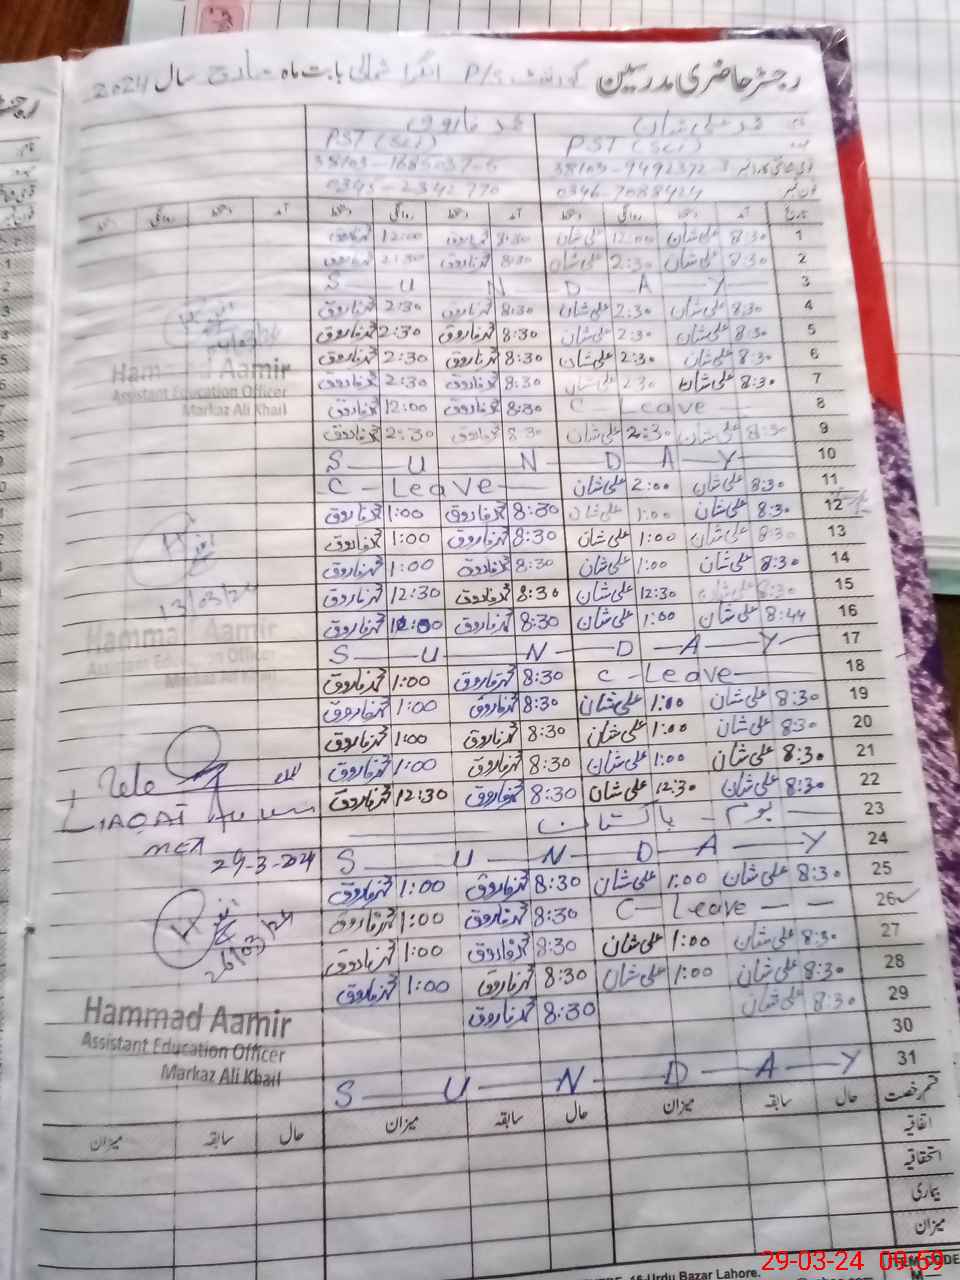 رجسٹر حاضری مدرسین گورنمنٹ P/S انگرا شمالی بابت ماہ مارچ سال 2024
محمد علی شان محمد فاروق
PST (Sci) PST (Sci)
38103-9492372 38103-1685037-5
فون نمبر 0346-7088424 0343-2342770
تاریخ آمد دستخط روانگی دستخط آمد دستخط روانگی دستخط آمد دستخط روانگی دستخط
1 8:30 علی شان 12:00 علی شان 8:30 محمد فاروق 12:00 محمد فاروق
2 8:30 علی شان 2:30 علی شان 8:30 محمد فاروق 2:30 محمد فاروق
3 S U N D A Y
4 8:30 علی شان 2:30 علی شان 8:30 محمد فاروق 2:30 محمد فاروق
5 8:30 علی شان 2:30 علی شان 8:30 محمد فاروق 2:30 محمد فاروق
6 8:30 علی شان 2:30 علی شان 8:30 محمد فاروق 2:30 محمد فاروق
7 8:30 علی شان 2:30 علی شان 8:30 محمد فاروق 2:30 محمد فاروق
8 C - Leave 8:30 محمد فاروق 12:00 محمد فاروق
9 8:30 علی شان 2:30 علی شان 8:30 محمد فاروق 2:30 محمد فاروق
10 S U N D A Y
11 8:30 علی شان 2:00 علی شان C - Leave
12 8:30 علی شان 1:00 علی شان 8:30 محمد فاروق 1:00 محمد فاروق
13 8:30 علی شان 1:00 علی شان 8:30 محمد فاروق 1:00 محمد فاروق
14 8:30 علی شان 1:00 علی شان 8:30 محمد فاروق 1:00 محمد فاروق
15 8:30 علی شان 12:30 علی شان 8:30 محمد فاروق 12:30 محمد فاروق
16 8:44 علی شان 1:00 علی شان 8:30 محمد فاروق محمد فاروق
17 S U N D A Y
18 C - Leave 8:30 محمد فاروق 1:00 محمد فاروق
19 8:30 علی شان 1:00 علی شان 8:30 محمد فاروق 1:00 محمد فاروق
20 8:30 علی شان 1:00 علی شان 8:30 محمد فاروق 1:00 محمد فاروق
21 8:30 علی شان 1:00 علی شان 8:30 محمد فاروق 1:00 محمد فاروق
22 8:30 علی شان 12:30 علی شان 8:30 محمد فاروق 12:30 محمد فاروق
23 یوم پاکستان
24 S U N D A Y
25 8:30 علی شان 1:00 علی شان 8:30 محمد فاروق 1:00 محمد فاروق
26 C - Leave 8:30 محمد فاروق 1:00 محمد فاروق
27 8:30 علی شان 1:00 علی شان 8:30 محمد فاروق 1:00 محمد فاروق
28 8:30 علی شان 1:00 علی شان 8:30 محمد فاروق 1:00 محمد فاروق
29 8:30 علی شان 8:30 محمد فاروق
30
31 S U N D A Y
قسم رخصت حال سابقہ میزان حال سابقہ میزان حال سابقہ میزان
اتفاقیہ
استحقاقیہ
بیماری
میزان
Hammad Aamir
Assistant Education Officer
Markaz Ali Khail
13/03/24
Hammad Aamir
Assistant Education Officer
Markaz Ali Khail
LIAQAT
MEA
29-3-2024
26/03/24
Hammad Aamir
Assistant Education Officer
Markaz Ali Khail
Urdu Bazar Lahore.
ITEM CODE
29-03-24 09:59